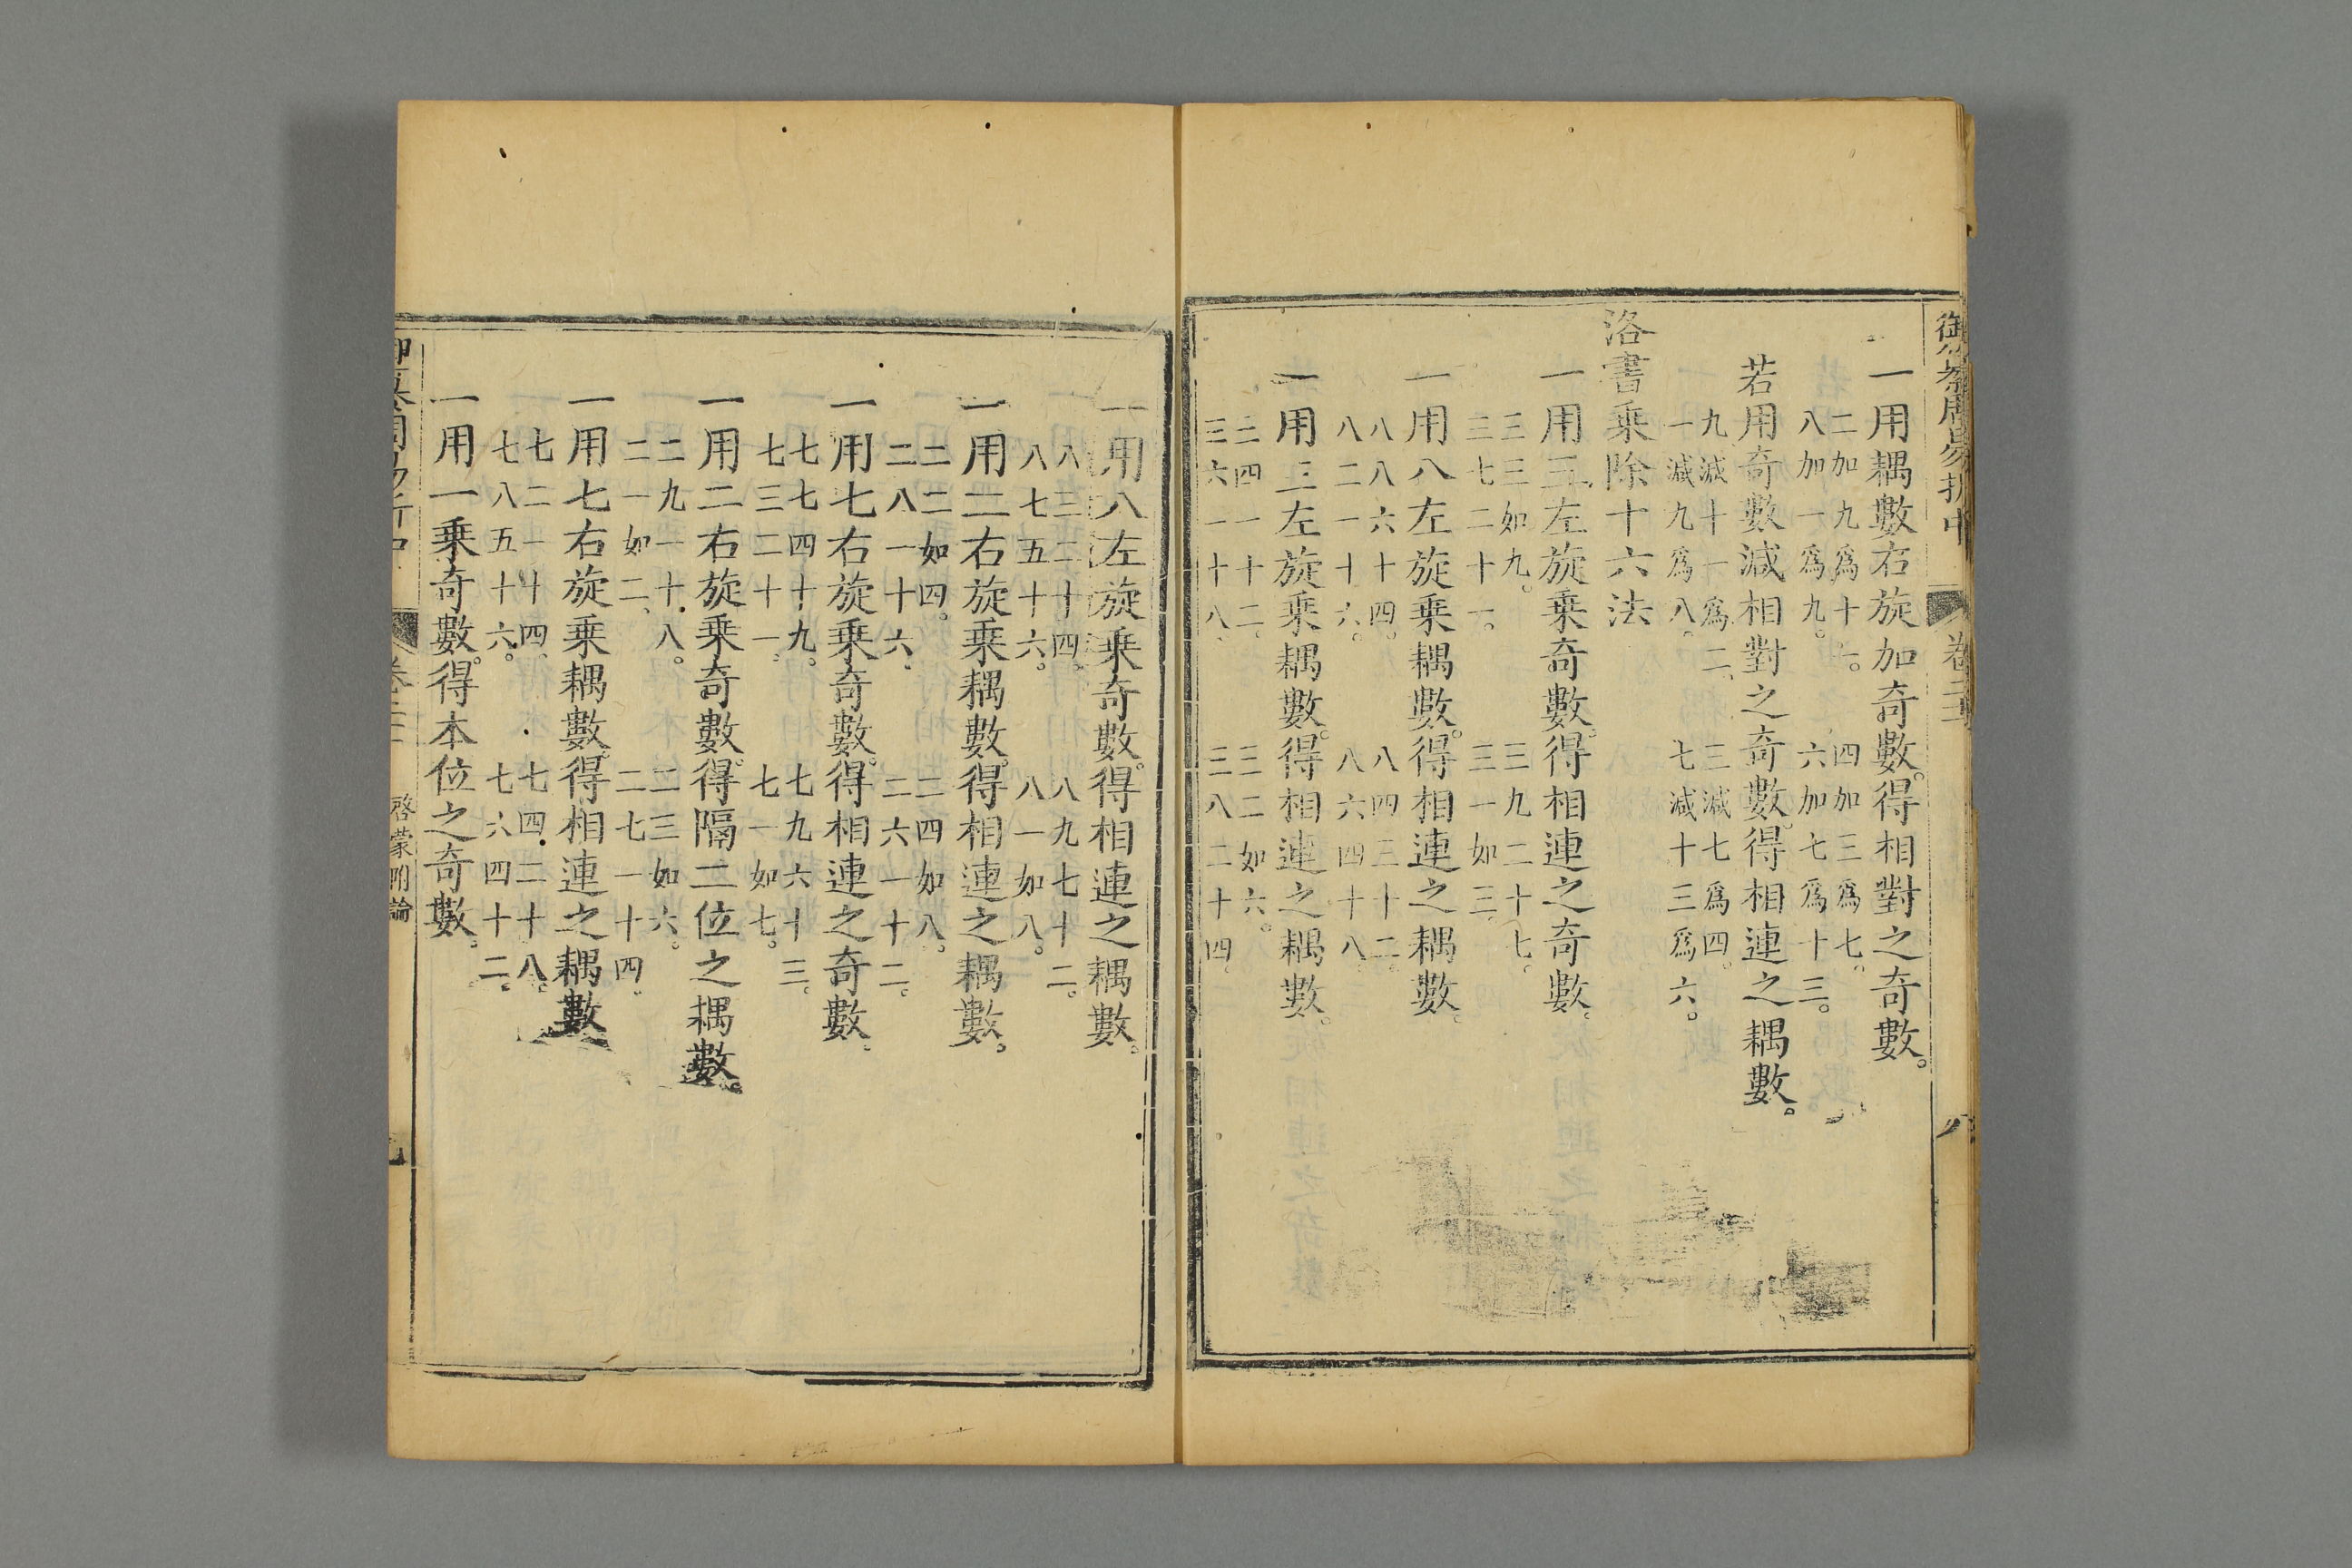 御纂周易折中 卷二十 八
一用耦數右旋加奇數。得相對之奇數。
二加九爲十一。 四加三爲七。
八加一爲九。 六加七爲十三。
若用奇數減相對之奇數。得相連之耦數。
九減十一爲二、 三減七爲四。
一減九爲八。 七減十三爲六。
洛書乘除十六法
一用三左旋乘奇數。得相連之奇數。
三三如九。 三九二十七。
三七二十一。 三一如三。
一用八左旋乘耦數。得相連之耦數。
八八六十四。 八四三十二。
八二一十六。 八六四十八。
一用三左旋乘耦數。得相連之耦數。
三四一十二。 三二如六。
三六一十八、 三八二十四。
一用八左旋乘奇數。得相連之耦數。
八三二十四。 八九七十二。
八七五十六。 八一如八。
一用二右旋乘耦數。得相連之耦數。
二二如四。 二四如八。
二八一十六、 二六一十二。
一用七右旋乘奇數。得相連之奇數。
七七四十九。 七九六十三。
七三二十一。 七一如七。
一用二右旋乘奇數。得隔二位之耦數。
二九一十八。 二三如六。
二一如二、 二七一十四。
一用七右旋乘耦數。得相連之耦數
七二一十四、 七四二十八。
七八五十六。 七六四十二。
一用一乘奇數。得本位之奇數。
御纂周易折中 卷二十 啓蒙附論 九